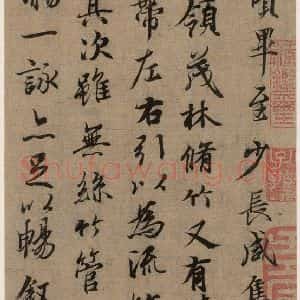 賢畢至少長咸集
領茂林脩竹又有
帶左右引以為流
其次雖無絲竹管
觴一詠亦足以暢敘